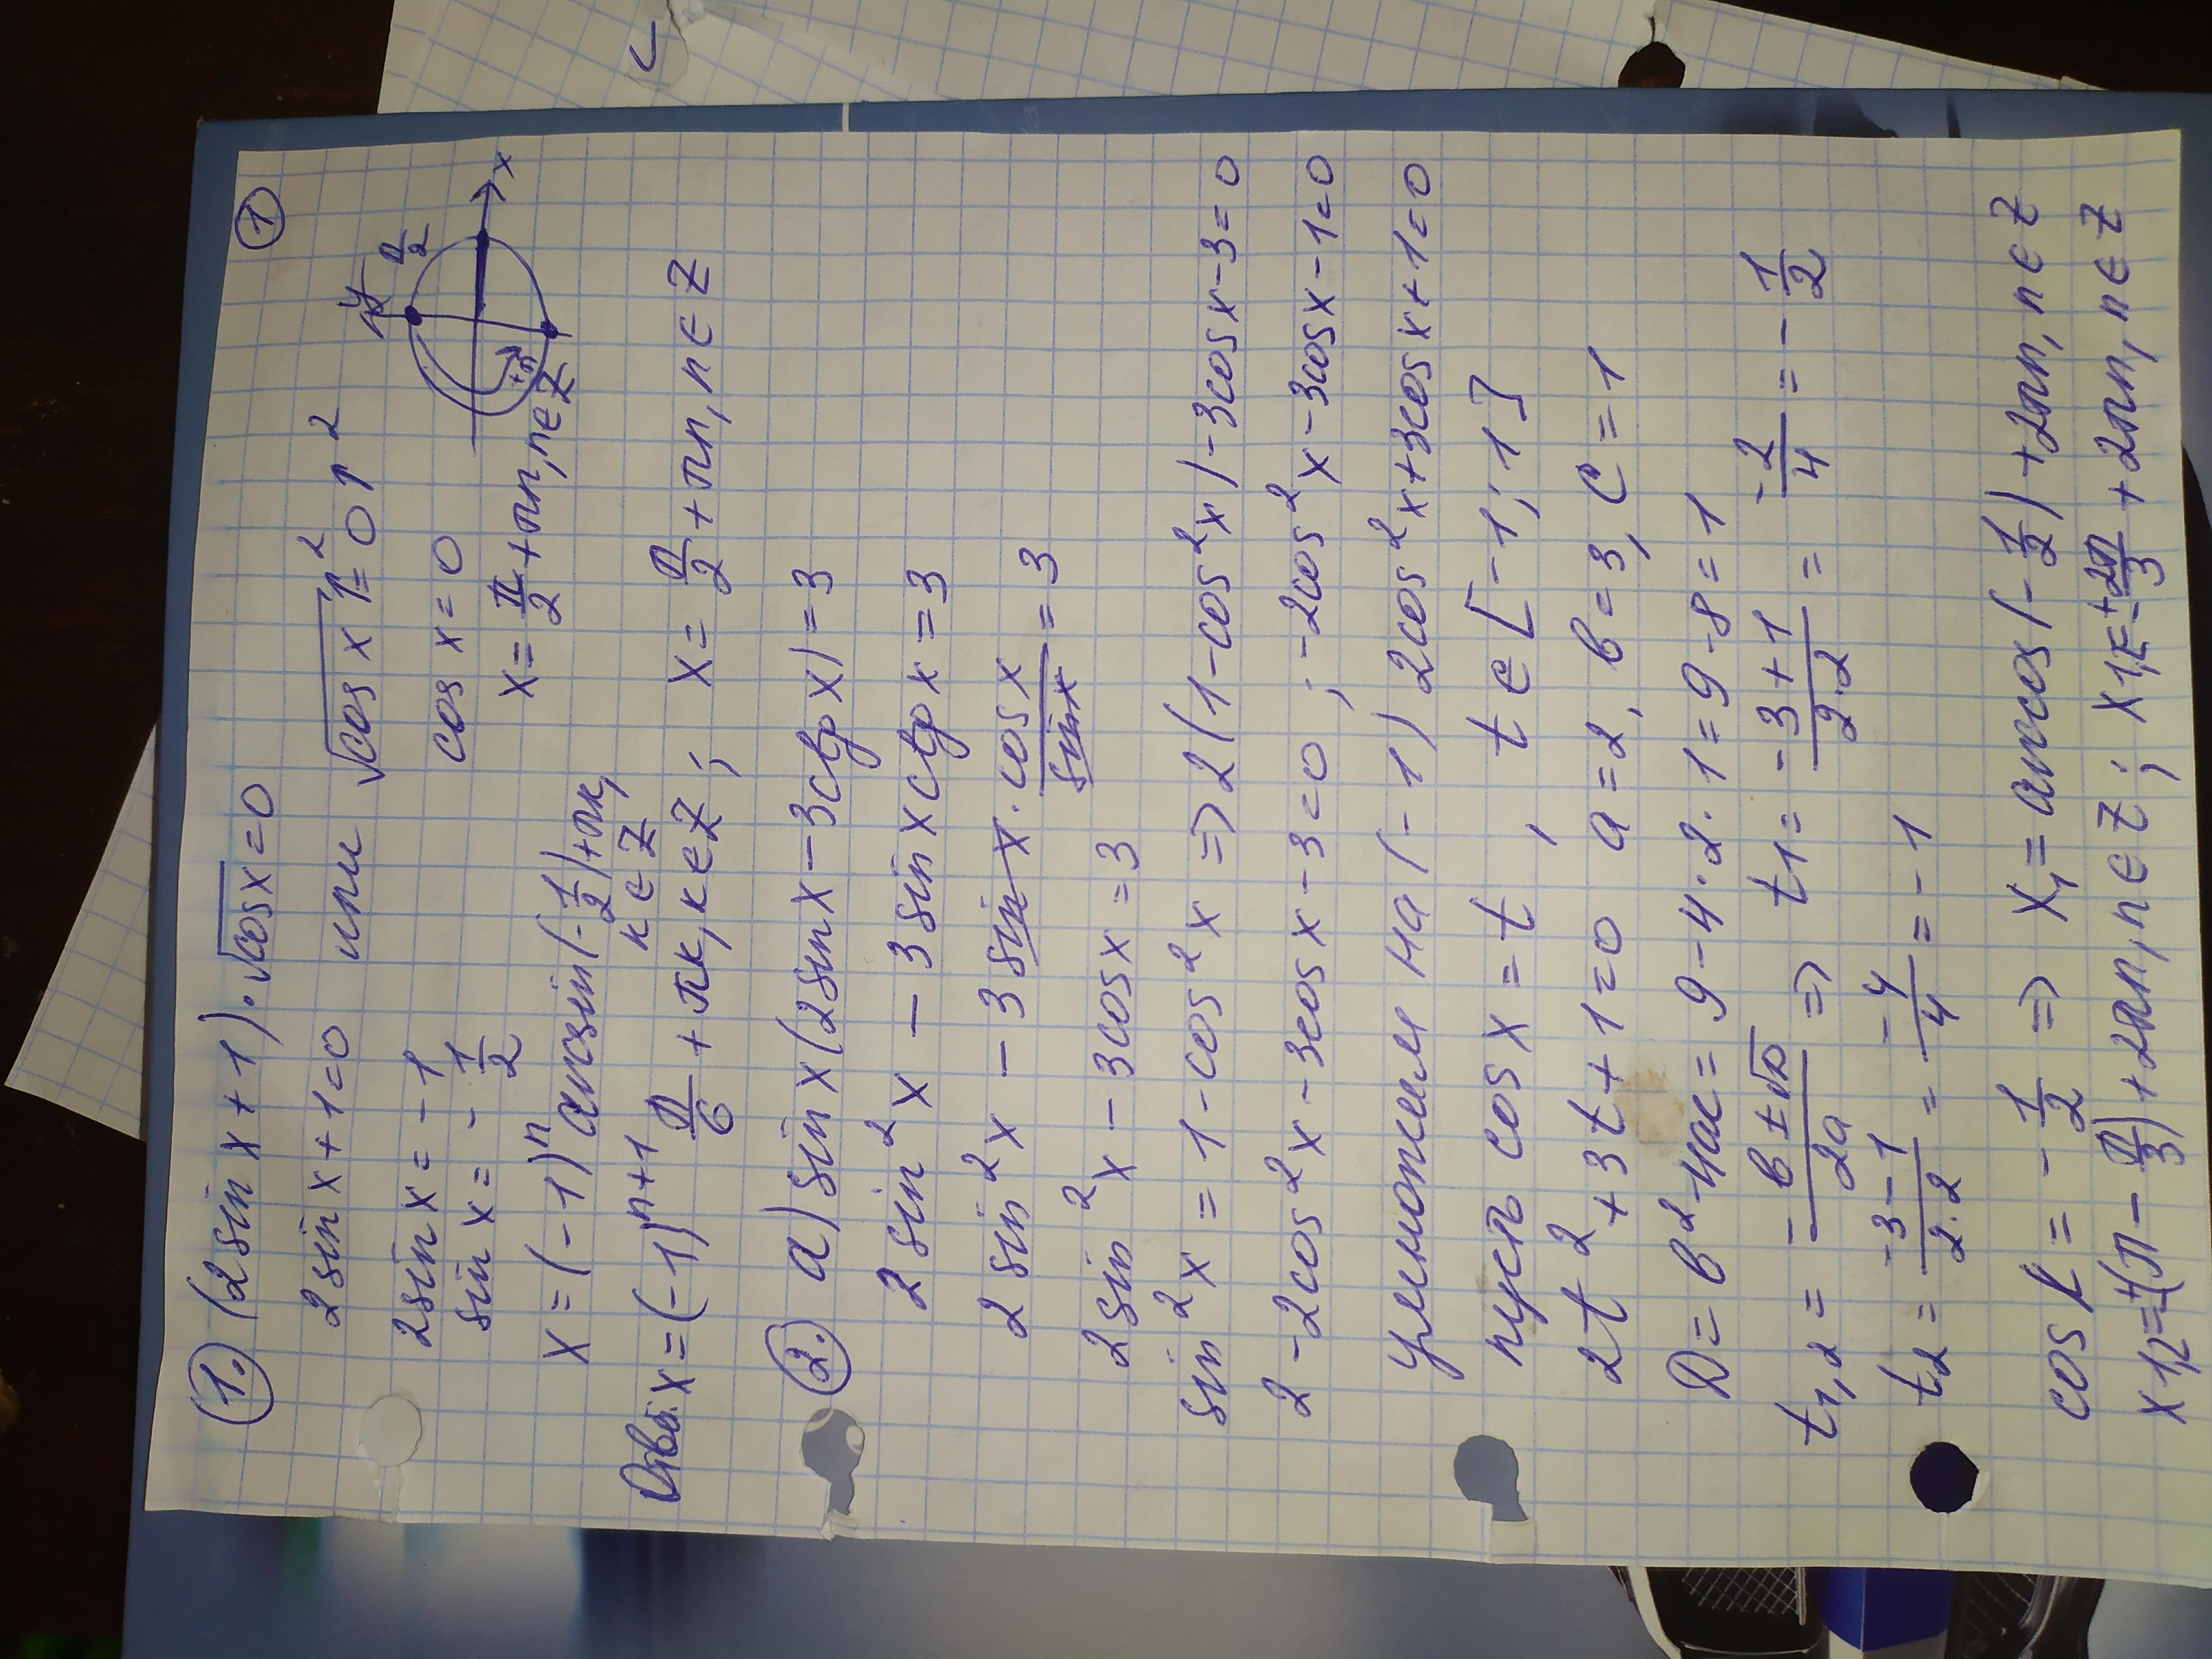 ①
①. (2sin x + 1) · √cos x = 0
2sin x + 1 = 0 или √cos x ↑² = 0 ↑²
2sin x = -1 cos x = 0
sin x = -1/2 x = π/2 + πn, n ∈ Z
y π/2 x +π
x = (-1)ⁿ arcsin(-1/2) + πк, к ∈ Z
Ответ: x = (-1)ⁿ⁺¹ π/6 + πк, к ∈ Z; x = π/2 + πn, n ∈ Z
②. а) sin x (2sin x - 3ctg x) = 3
2sin²x - 3sin x ctg x = 3
2sin²x - 3sin x · cos x/sin x = 3
2sin²x - 3cos x = 3
sin²x = 1 - cos²x => 2(1 - cos²x) - 3cos x - 3 = 0
2 - 2cos²x - 3cos x - 3 = 0; -2cos²x - 3cos x - 1 = 0
умножим на (-1) 2cos²x + 3cos x + 1 = 0
пусть cos x = t, t ∈ [-1; 1]
2t² + 3t + 1 = 0 a = 2, b = 3, c = 1
D = b² - 4ac = 9 - 4·2·1 = 9 - 8 = 1
t1,2 = -b ± √D/2a => t1 = -3 + 1/2·2 = -2/4 = -1/2
t2 = -3 - 1/2·2 = -4/4 = -1
cos x = -1/2 => x1 = arccos(-1/2) + 2πn, n ∈ Z
x1,2 = ±(π - π/3) + 2πn, n ∈ Z; x1,2 = ±2π/3 + 2πn, n ∈ Z